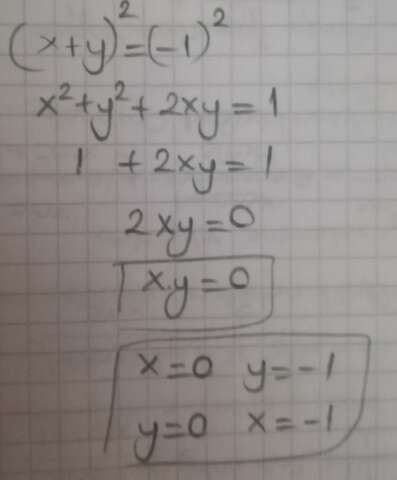 (x+y)²=(-1)²
x²+y²+2xy=1
1 +2xy=1
2xy=0
x.y=0
x=0 y=-1
y=0 x=-1